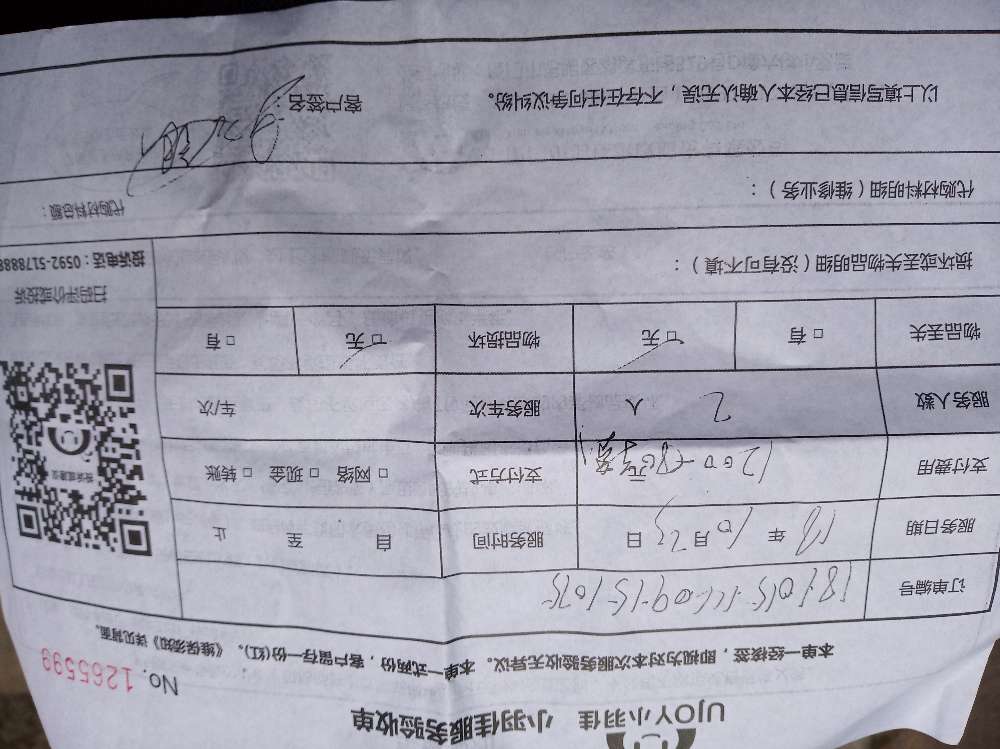 UJOY小羽佳 小羽佳服务验收单
No. 1265599
本单一经接签，即视为对本次服务验收无异议。 本单一式两份，客户留存一份(红)。 《维保须知》详见背面。
订单编号
服务日期 18 年 10 月 25 日 服务时间 自 至 止
支付费用 1200 支付方式 □ 网络 □ 现金 □ 转账
服务人数 2 人 服务车次 车/次
物品丢失 □ 有 □ 无 物品损坏 □ 无 □ 有
扫码评价或投诉
投诉电话：0592-5178888
损坏或丢失物品明细（没有可不填）：
代购材料明细（维修业务）：
代购材料总额：
以上填写信息已经本人确认无误，不存在任何争议纠纷。 客户签名：